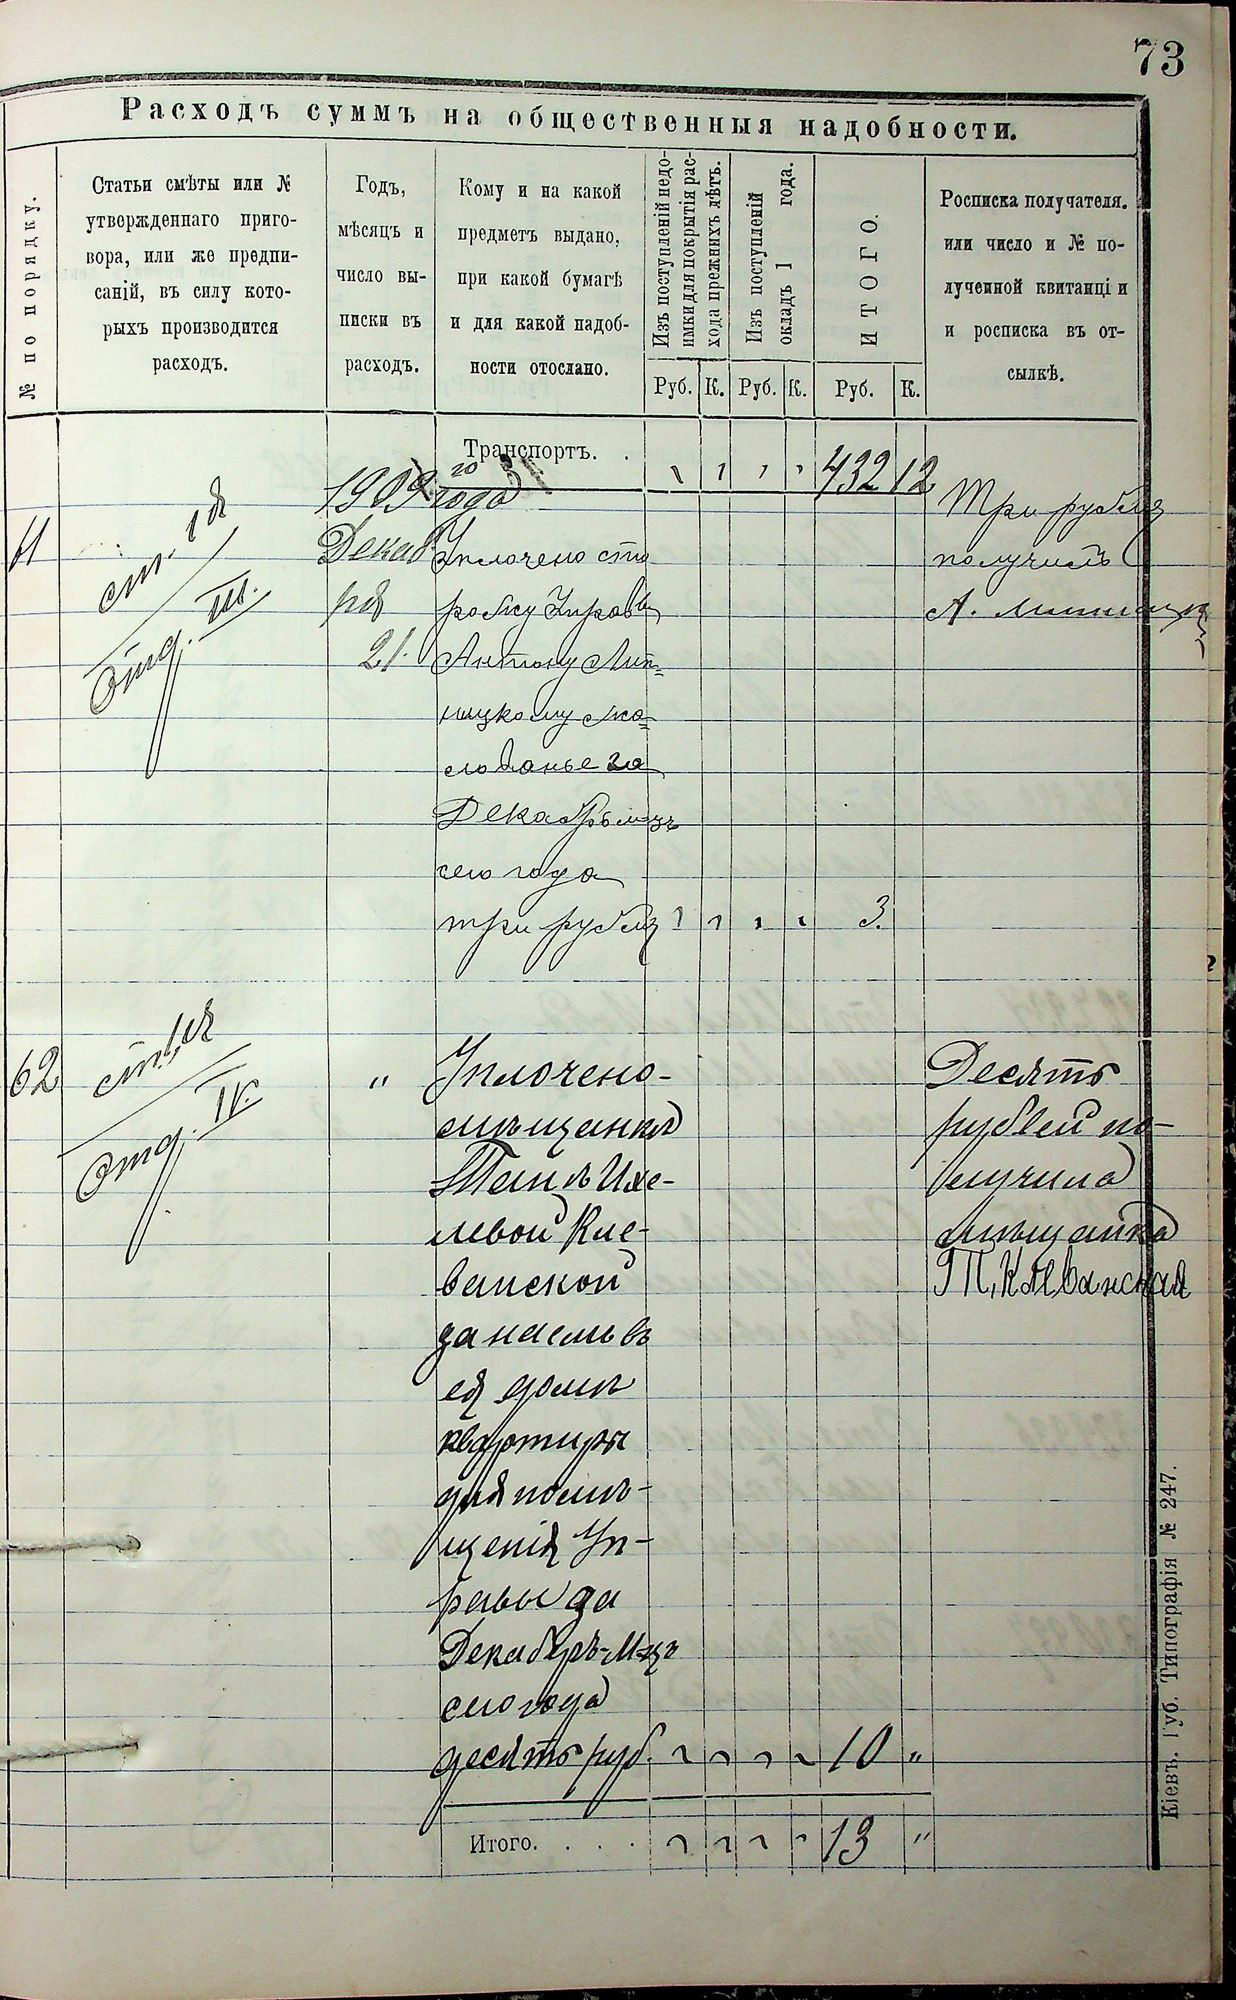 73
Расходъ суммъ на общественныя надобности.
№ по порядку.
Статьи смѣты или №
утвержденнаго приго-
вора, или же предпи-
саній, въ силу кото-
рыхъ производится
расходъ.
Годъ,
мѣсяцъ и
число вы-
писки въ
расходъ.
Кому и на какой
предметъ выдано,
при какой бумагѣ
и для какой надоб-
ности отослано.
Изъ поступленій недо-
имки для покрытія рас-
хода прежнихъ лѣтъ.
Изъ поступленій
окладъ 1 года.
ИТОГО.
Росписка получателя.
или число и № по-
лученной квитанці и
и росписка въ от-
сылкѣ.
Руб. К. Руб. К. Руб. К.
Транспортъ. . 432 12
1909 го года
ст. 1я
Отд. III.
Декаб
ря
21.
Уплочено сто
рожу Управы
Антону Лип=
ницкому жа=
лованье за
Декабрь м-цъ
сего года
три рубля 3.
Три рубля
получилъ
А.
62
ст. 1я
Отд. IV.
"
Уплочено-
мѣщанкѣ
Хе-
левой Кле-
ванской
за наемъ въ
ея домѣ
квартиры
для помѣ-
щенія Уп-
равы за
Декабрь-М-цъ
сего года
десять руб. 10 "
Десять
рублей по-
лучила
мѣщанка
П. Клеванская
Итого. . . . 13 "
Кіевъ. Губ. Типографія № 247.